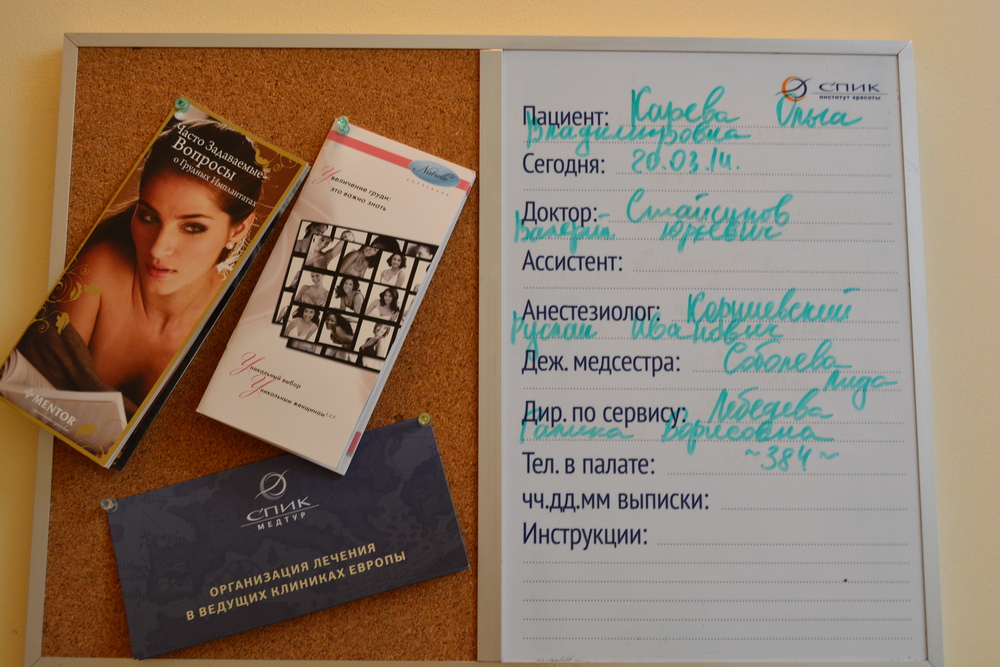 Часто Задаваемые
Вопросы
о Грудных Имплантатах
MENTOR
Natrelle
Увеличение груди:
это важно знать
Уникальный выбор
Уникальным женщинам
СПИК
МЕДТУР
ОРГАНИЗАЦИЯ ЛЕЧЕНИЯ
В ВЕДУЩИХ КЛИНИКАХ ЕВРОПЫ
СПИК
институт красоты
Пациент: Карева Ольга
Владимировна
Сегодня: 20.03.14.
Доктор: Стайсупов
Валерий Юрьевич
Ассистент:
Анестезиолог: Коришевский
Руслан Иванович
Деж. медсестра: Соболева
Лида
Дир. по сервису: Лебедева
Галина Борисовна
Тел. в палате: ~384~
чч.дд.мм выписки:
Инструкции: